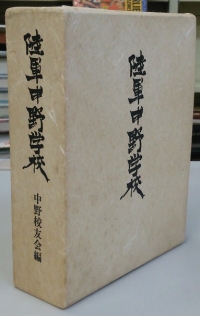 陸軍中野学校
中野校友会編
陸軍中野学校